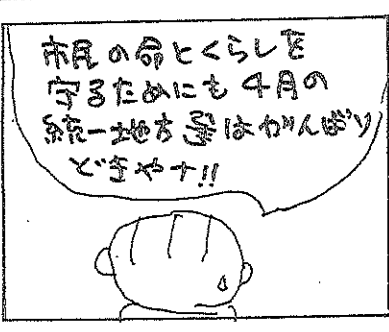 市民の命とくらしを
守るためにも4月の
統一地方選はがんばり
どきやナ!!